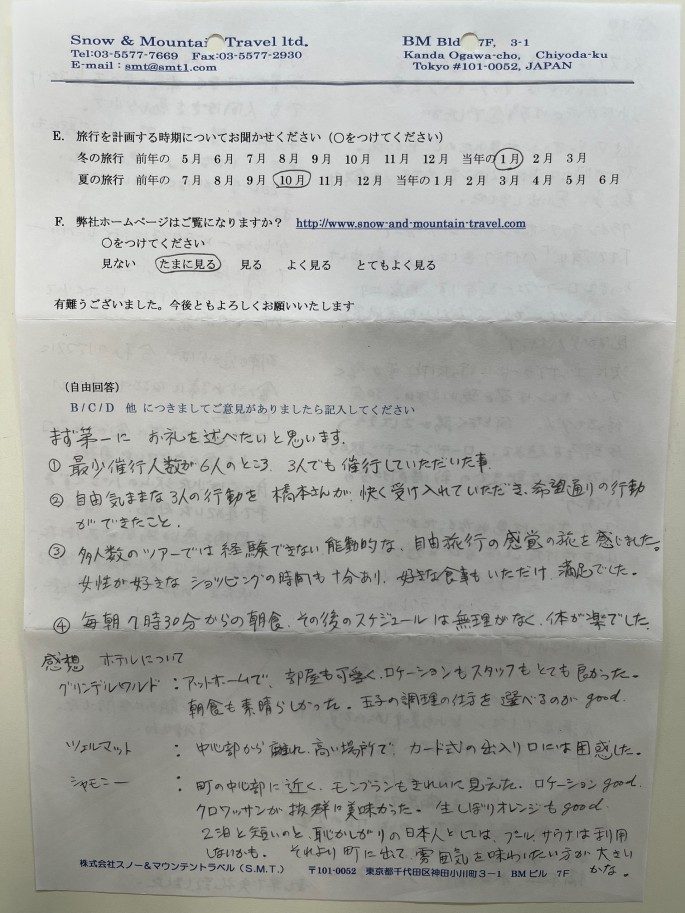 Snow & Mountain Travel ltd.
Tel:03-5577-7669 Fax:03-5577-2930
E-mail : smt@smt1.com
BM Bld 7F, 3-1
Kanda Ogawa-cho, Chiyoda-ku
Tokyo #101-0052, JAPAN
E. 旅行を計画する時期についてお聞かせください（○をつけてください）
冬の旅行 前年の 5月 6月 7月 8月 9月 10月 11月 12月 当年の 1月 2月 3月
夏の旅行 前年の 7月 8月 9月 10月 11月 12月 当年の 1月 2月 3月 4月 5月 6月
F. 弊社ホームページはご覧になりますか？ http://www.snow-and-mountain-travel.com
○をつけてください
見ない たまに見る 見る よく見る とてもよく見る
有難うございました。今後ともよろしくお願いいたします
（自由回答）
B / C / D 他 につきましてご意見がありましたら記入してください
まず第一に お礼を述べたいと思います.
① 最少催行人数が6人のところ、3人でも催行していただいた事.
② 自由気ままな3人の行動を 橋本さんが、快く受け入れていただき、希望通りの行動
ができたこと.
③ 多人数のツアーでは経験できない能動的な、自由旅行の感覚の旅を感じました。
女性が好きなショッピングの時間も十分あり、好きな食事もいただけ、満足でした。
④ 毎朝7時30分からの朝食、その後のスケジュールは無理がなく、体が楽でした.
感想 ホテルについて
グリンデルワルド : アットホームで、部屋も可愛く、ロケーションもスタッフもとても良かった。
朝食も素晴らしかった。玉子の調理の仕方を選べるのが good.
ツェルマット : 中心部から離れ、高い場所で、カード式の出入り口には困惑した。
シャモニー : 町の中心部に近く、モンブランもきれいに見えた. ロケーション good.
クロワッサンが抜群に美味かった。生しぼりオレンジも good.
2泊と短いのと、恥かしがりの日本人としては、プール、サウナは利用
しないかも。それより町に出て、雰囲気を味わいたい方が大きい
かな。
株式会社スノー＆マウンテントラベル（S.M.T.） 〒101-0052 東京都千代田区神田小川町3－1 BMビル 7F